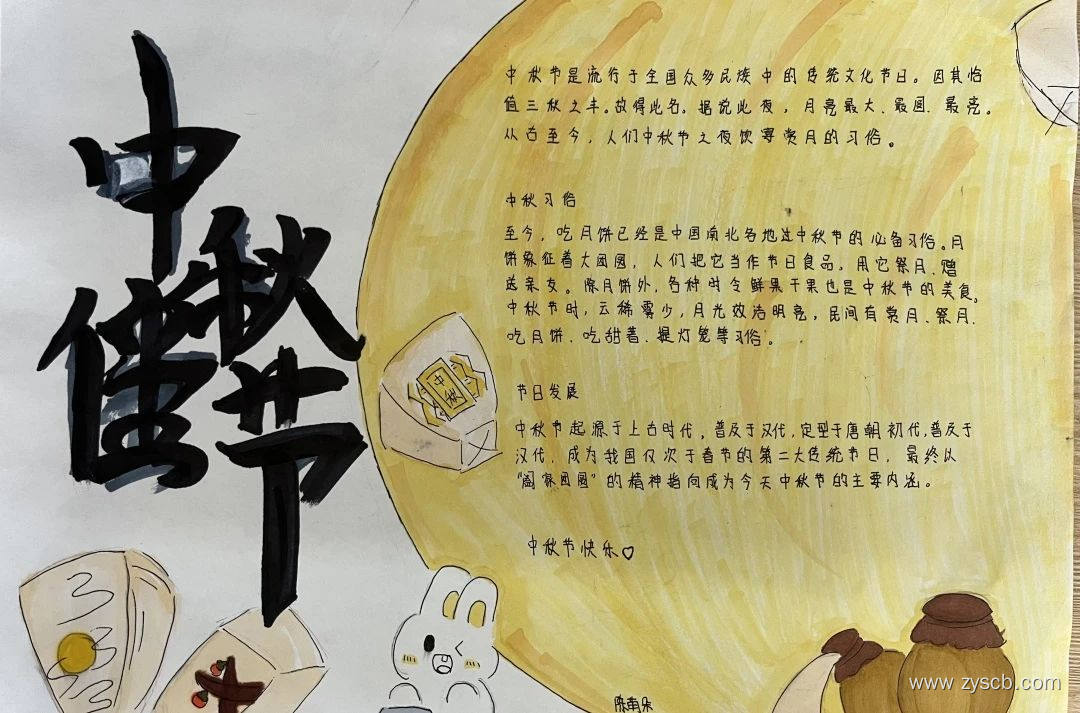 中秋佳节
中秋节是流行于全国众多民族中的传统文化节日。因其恰
值三秋之半。故得此名。据说此夜，月亮最大、最圆、最亮。
从古至今，人们中秋节之夜饮宴赏月的习俗。
中秋习俗
至今，吃月饼已经是中国南北各地过中秋节的必备习俗。月
饼象征着大团圆，人们把它当作节日食品，用它祭月、赠
送亲友。除月饼外，各种时令鲜果干果也是中秋节的美食。
中秋节时，云稀雾少，月光皎洁明亮，民间有赏月、祭月、
吃月饼、吃甜薯、提灯笼等习俗。
中秋
节日发展
中秋节起源于上古时代，普及于汉代，定型于唐朝初代，普及于
汉代、成为我国仅次于春节的第二大传统节日，最终以
“阖家团圆”的精神指向成为今天中秋节的主要内涵。
中秋节快乐♡
www.zyscb.com